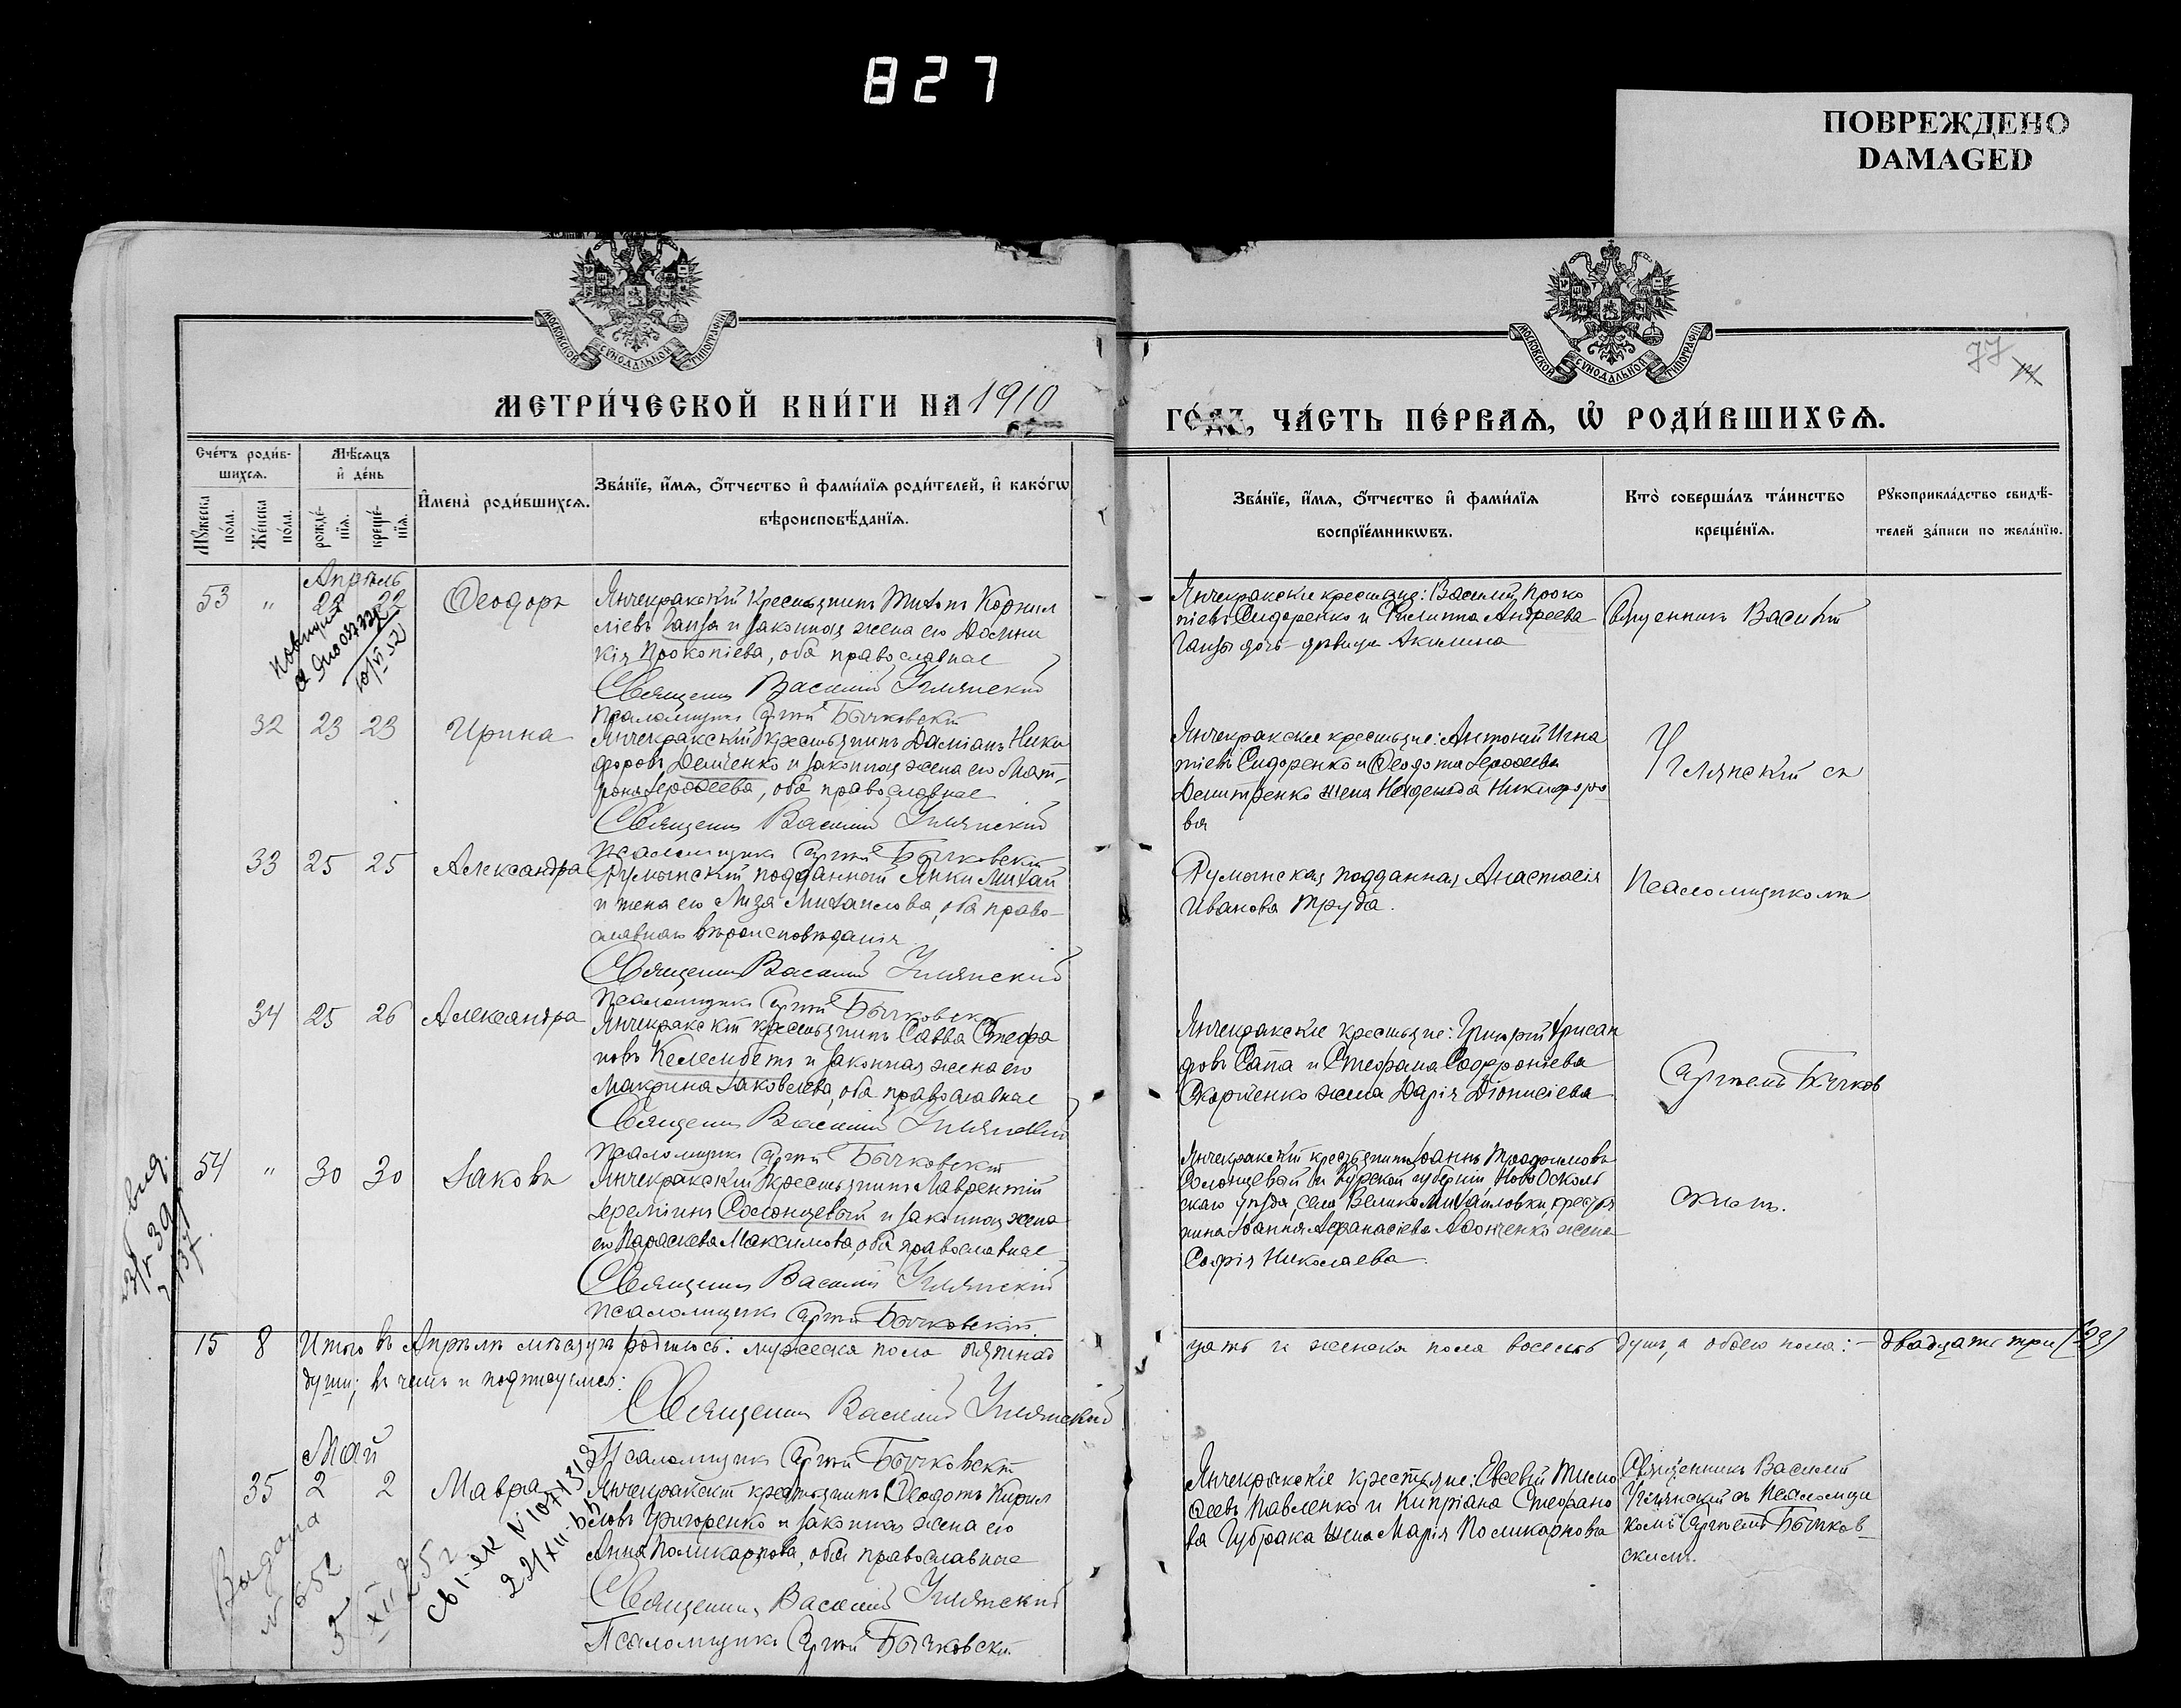 827
ПОВРЕЖДЕНО
DAMAGED
МОСКОВСКОЙ СѴНОДАЛЬНОЙ ТИПОГРАФІИ
МОСКОВСКОЙ СѴНОДАЛЬНОЙ ТИПОГРАФІИ
77
14
МЕТРИ́ЧЕСКОЙ КНИ́ГИ НА 1910
ГО́ДЪ, ЧА́СТЬ ПЕ́РВАѦ, Ѡ҆ РОДИ́ВШИХСѦ.
Сче́тъ роди́в-
шихсѧ.
Мꙋ́жеска по́ла.
Же́нска по́ла.
Мѣ́сѧцъ
и҆ де́нь
рожде́-нїѧ.
креще́-нїѧ.
И҆мена̀ роди́вшихсѧ.
Зва́нїе, и҆́мѧ, ѻ҆́тчество и҆ фами́лїѧ роди́телей, и҆ како́гѡ
вѣроисповѣ́данїѧ.
Зва́нїе, и҆́мѧ, ѻ҆́тчество и҆ фами́лїѧ
воспрїе́мникѡвъ.
Кто̀ соверша́лъ та́инство
креще́нїѧ.
Рꙋкоприкла́дство свидѣ́-
телей за́писи по жела́нїю.
Апрѣль
53 " 22 22 Ѳеодоръ
Янчекракскій крестьянинъ Титъ Корнил
ліевъ Ганза и законная жена его Домни
кія Прокопіева, оба православные
Священникъ Василій Углянскій
Псаломщикъ Сергій Бычковскій
Янчекракскіе крестьяне: Василій Проко
піевъ Сидоренко и Филиппа Андреева
Ганзы дочь-дѣвица Акилина
Священникъ Василій
повторн
10/VI 52
32 23 23 Ирина
Янчекракскій крестьянинъ Даміанъ Ники
форовъ Демченко и законная жена его Мат-
рона Іероѳеева, оба православные
Священникъ Василій Углянскій
Псаломщикъ Сергій Бычковскій
Янчекракскіе крестьяне: Антоній Игна
тіевъ Сидоренко и Ѳеодота Іероѳеева
Дмитренко жена Неонила Никифоро-
ва
Углянскій съ
33 25 25 Александра
Румынскій подданный Янки Михай
и жена его Лиза Михаилова, оба право-
славнаго вѣроисповѣданія
Священникъ Василій Углянскій
Псаломщикъ Сергій Бычковскій
Румынская подданная Анастасія
Иванова Труда.
Псаломщикомъ
34 25 26 Александра
Янчекракскій крестьянинъ Савва Стефа
новъ Келембетъ и законная жена его
Макрина Іаковлева, оба православные
Священникъ Василій Углянскій
Псаломщикъ Сергій Бычковскій
Янчекракскіе крестьяне: Григорій Хрисан
фовъ Сапа и Стефана Софроніева
Скорченко жена Дарія Діонисіева
Сергіемъ Бычков
54 " 30 30 Іаковъ
Янчекракскій крестьянинъ Лаврентій
Іереміинъ Солонцевый и законная жена
его Параскева Максимова, оба православные
Священникъ Василій Углянскій
Псаломщикъ Сергій Бычковскій
Янчекракскій крестьянинъ Іоаннъ Трофимовъ
Солонцевый и Курской губерніи Новооскольс
каго уѣзда, села Велико-Михайловки, крестья
нина Іоанна Аѳанасіева жена
Софія Николаева.
скимъ.
15 8 Итого въ Апрѣлѣ мѣсяцѣ родилось: мужеска пола пятнад
цать и женска пола восемь душъ, а обоего пола:- двадцать три (23)
души; въ чемъ и подписуемся:
Священникъ Василій Углянскій
Псаломщикъ Сергій Бычковскій
Май
35 2 2 Мавра
Янчекракскій крестьянинъ Ѳеодотъ Кирил
ловъ Григоренко и законная жена его
Анна Поликарпова, оба православные
Священникъ Василій Углянскій
Псаломщикъ Сергій Бычковскій.
Янчекракскіе крестьяне: Евсевій Тимо
ѳеевъ Павленко и Кипріана Стефано
ва Чубрака жена Марія Поликарпова
Священникъ Василій
Углянскій съ Псаломщи
комъ Сергіемъ Бычков-
скимъ.
Видана
N 652